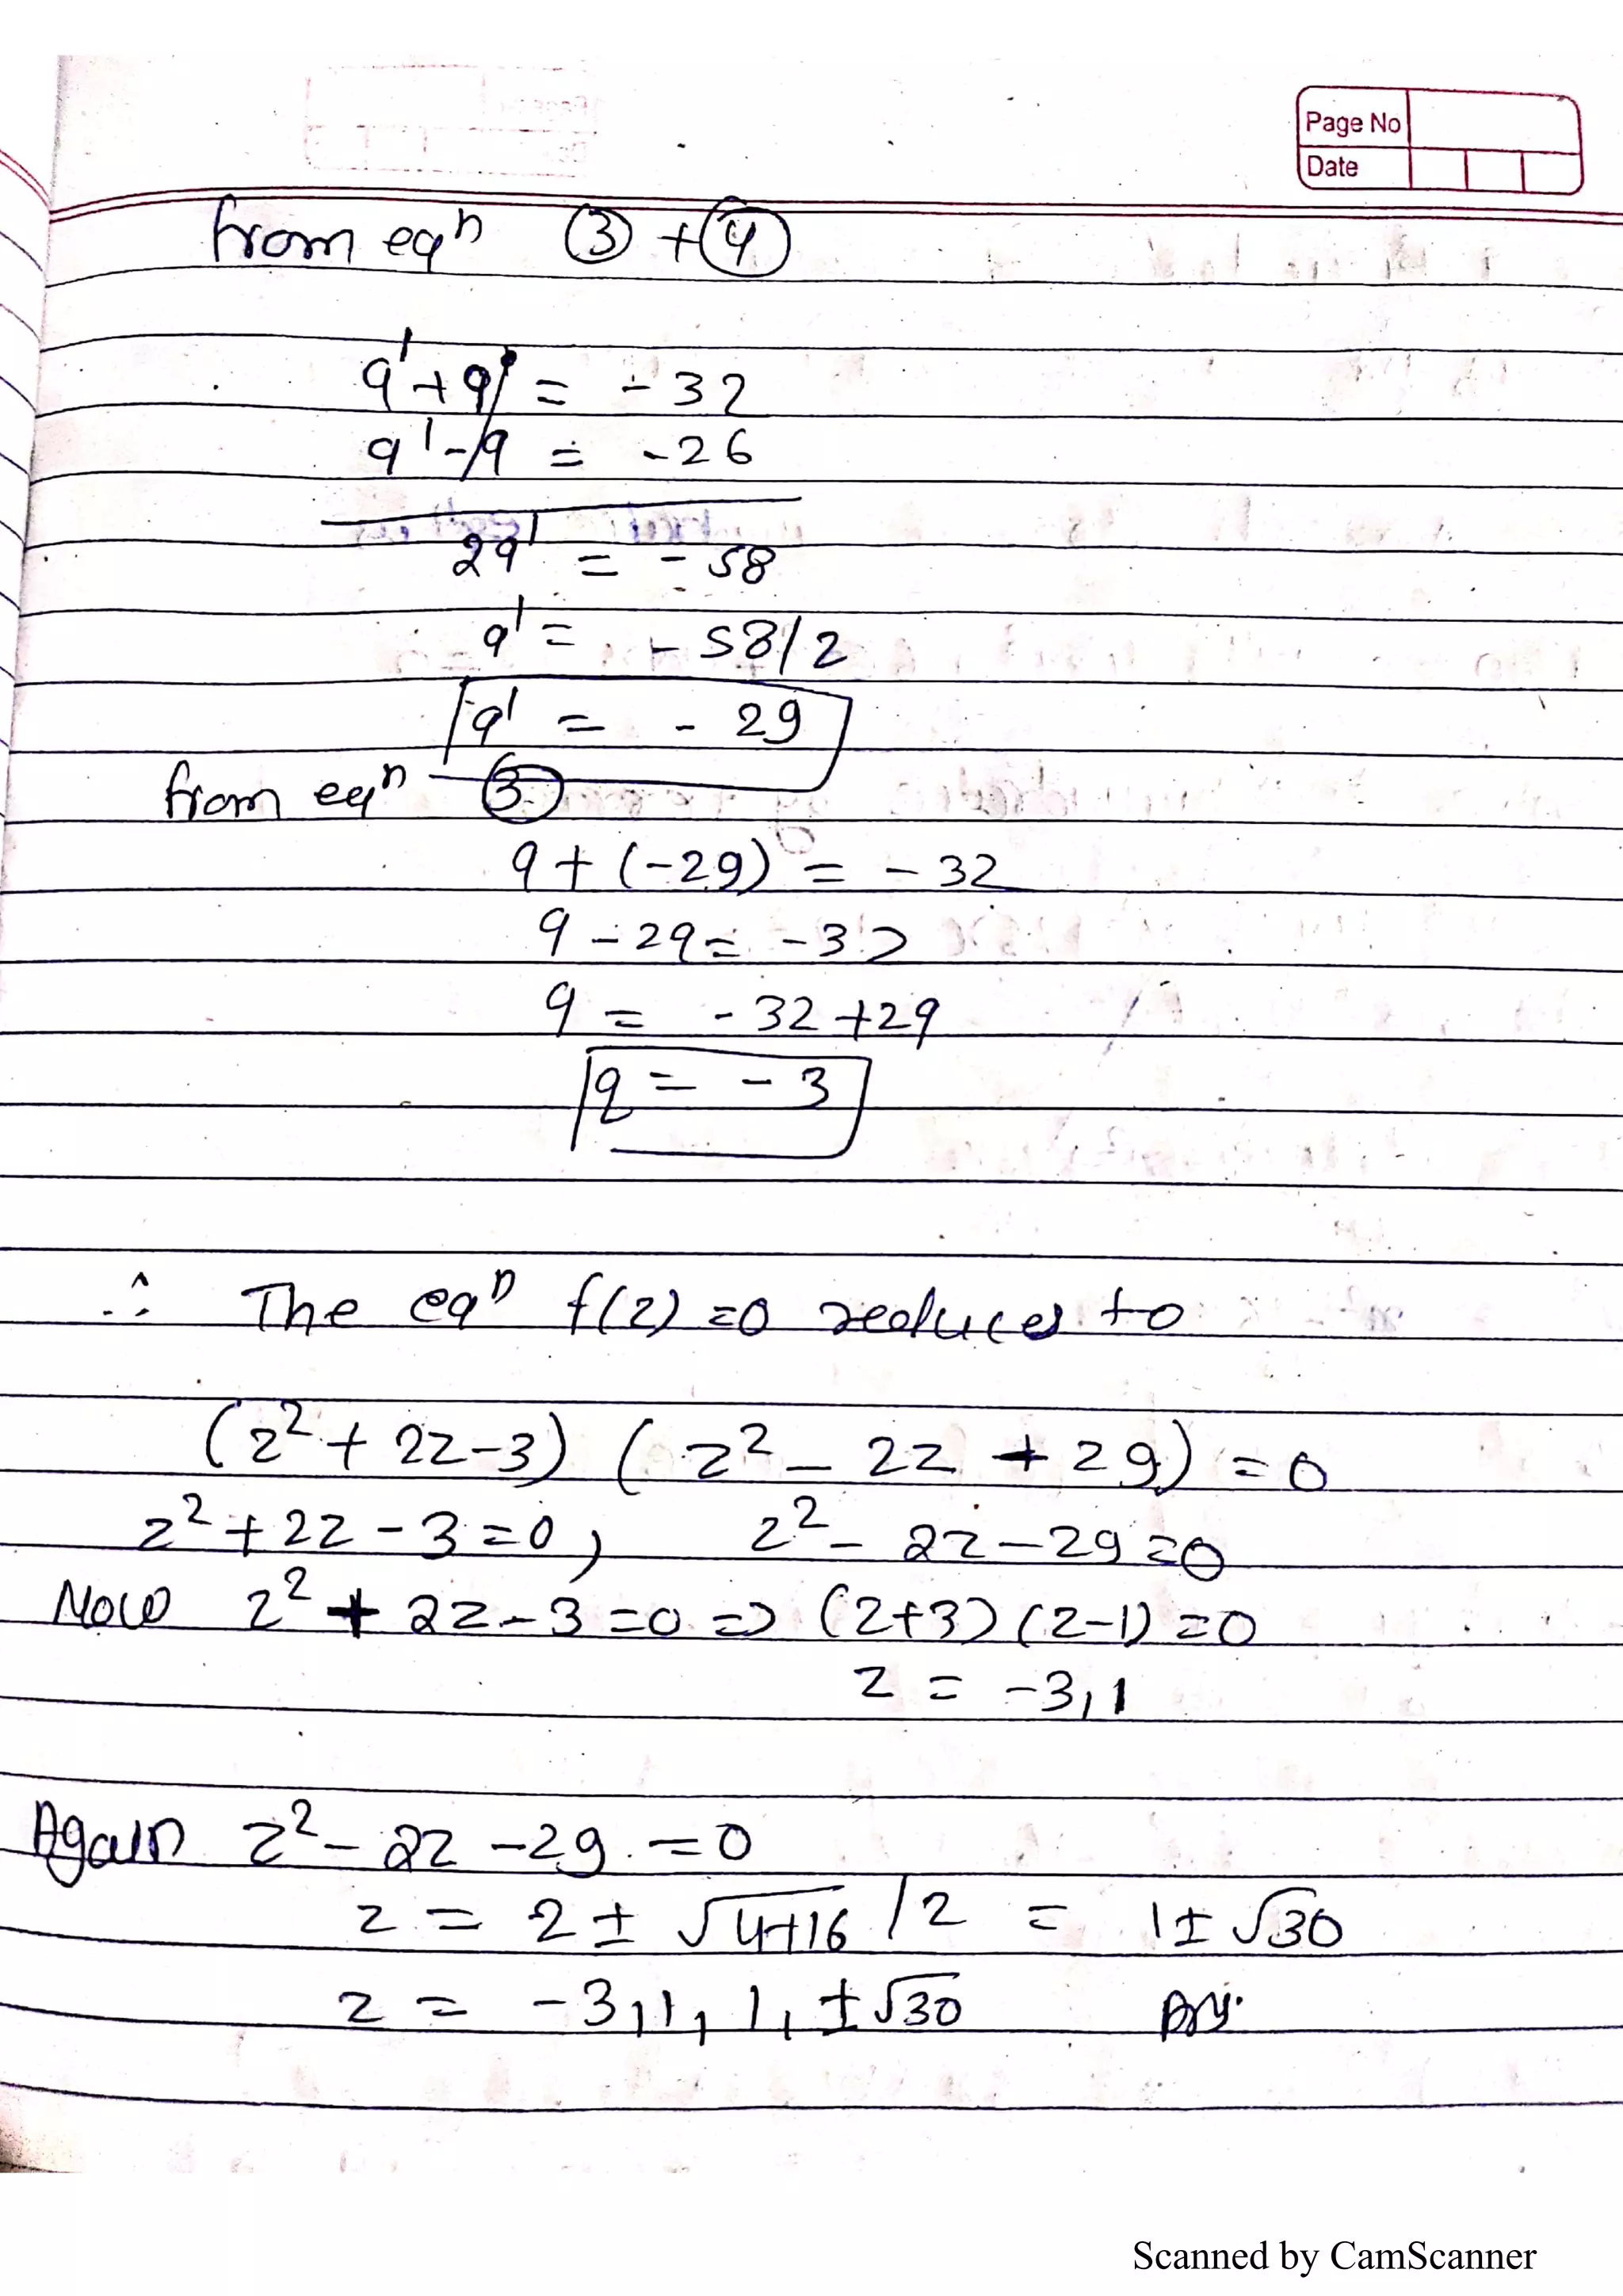 Page No
Date
from eqⁿ ③ + ④
q' + q = -32
q' - q = -26
2q' = -58
q' = -58/2
q' = -29
from eqⁿ ③
q + (-29) = -32
q - 29 = -32
q = -32 + 29
q = -3
∴ The eqⁿ f(z) = 0 reduces to
(z² + 2z - 3) ( z² - 2z + 29) = 0
z² + 2z - 3 = 0, z² - 2z - 29 = 0
Now z² + 2z - 3 = 0 => (z+3) (z-1) = 0
z = -3, 1
Again z² - 2z - 29 = 0
z = 2 ± √4+16 /2 = 1 ± √30
z = -3, 1, 1, ± √30 Ans.
Scanned by CamScanner